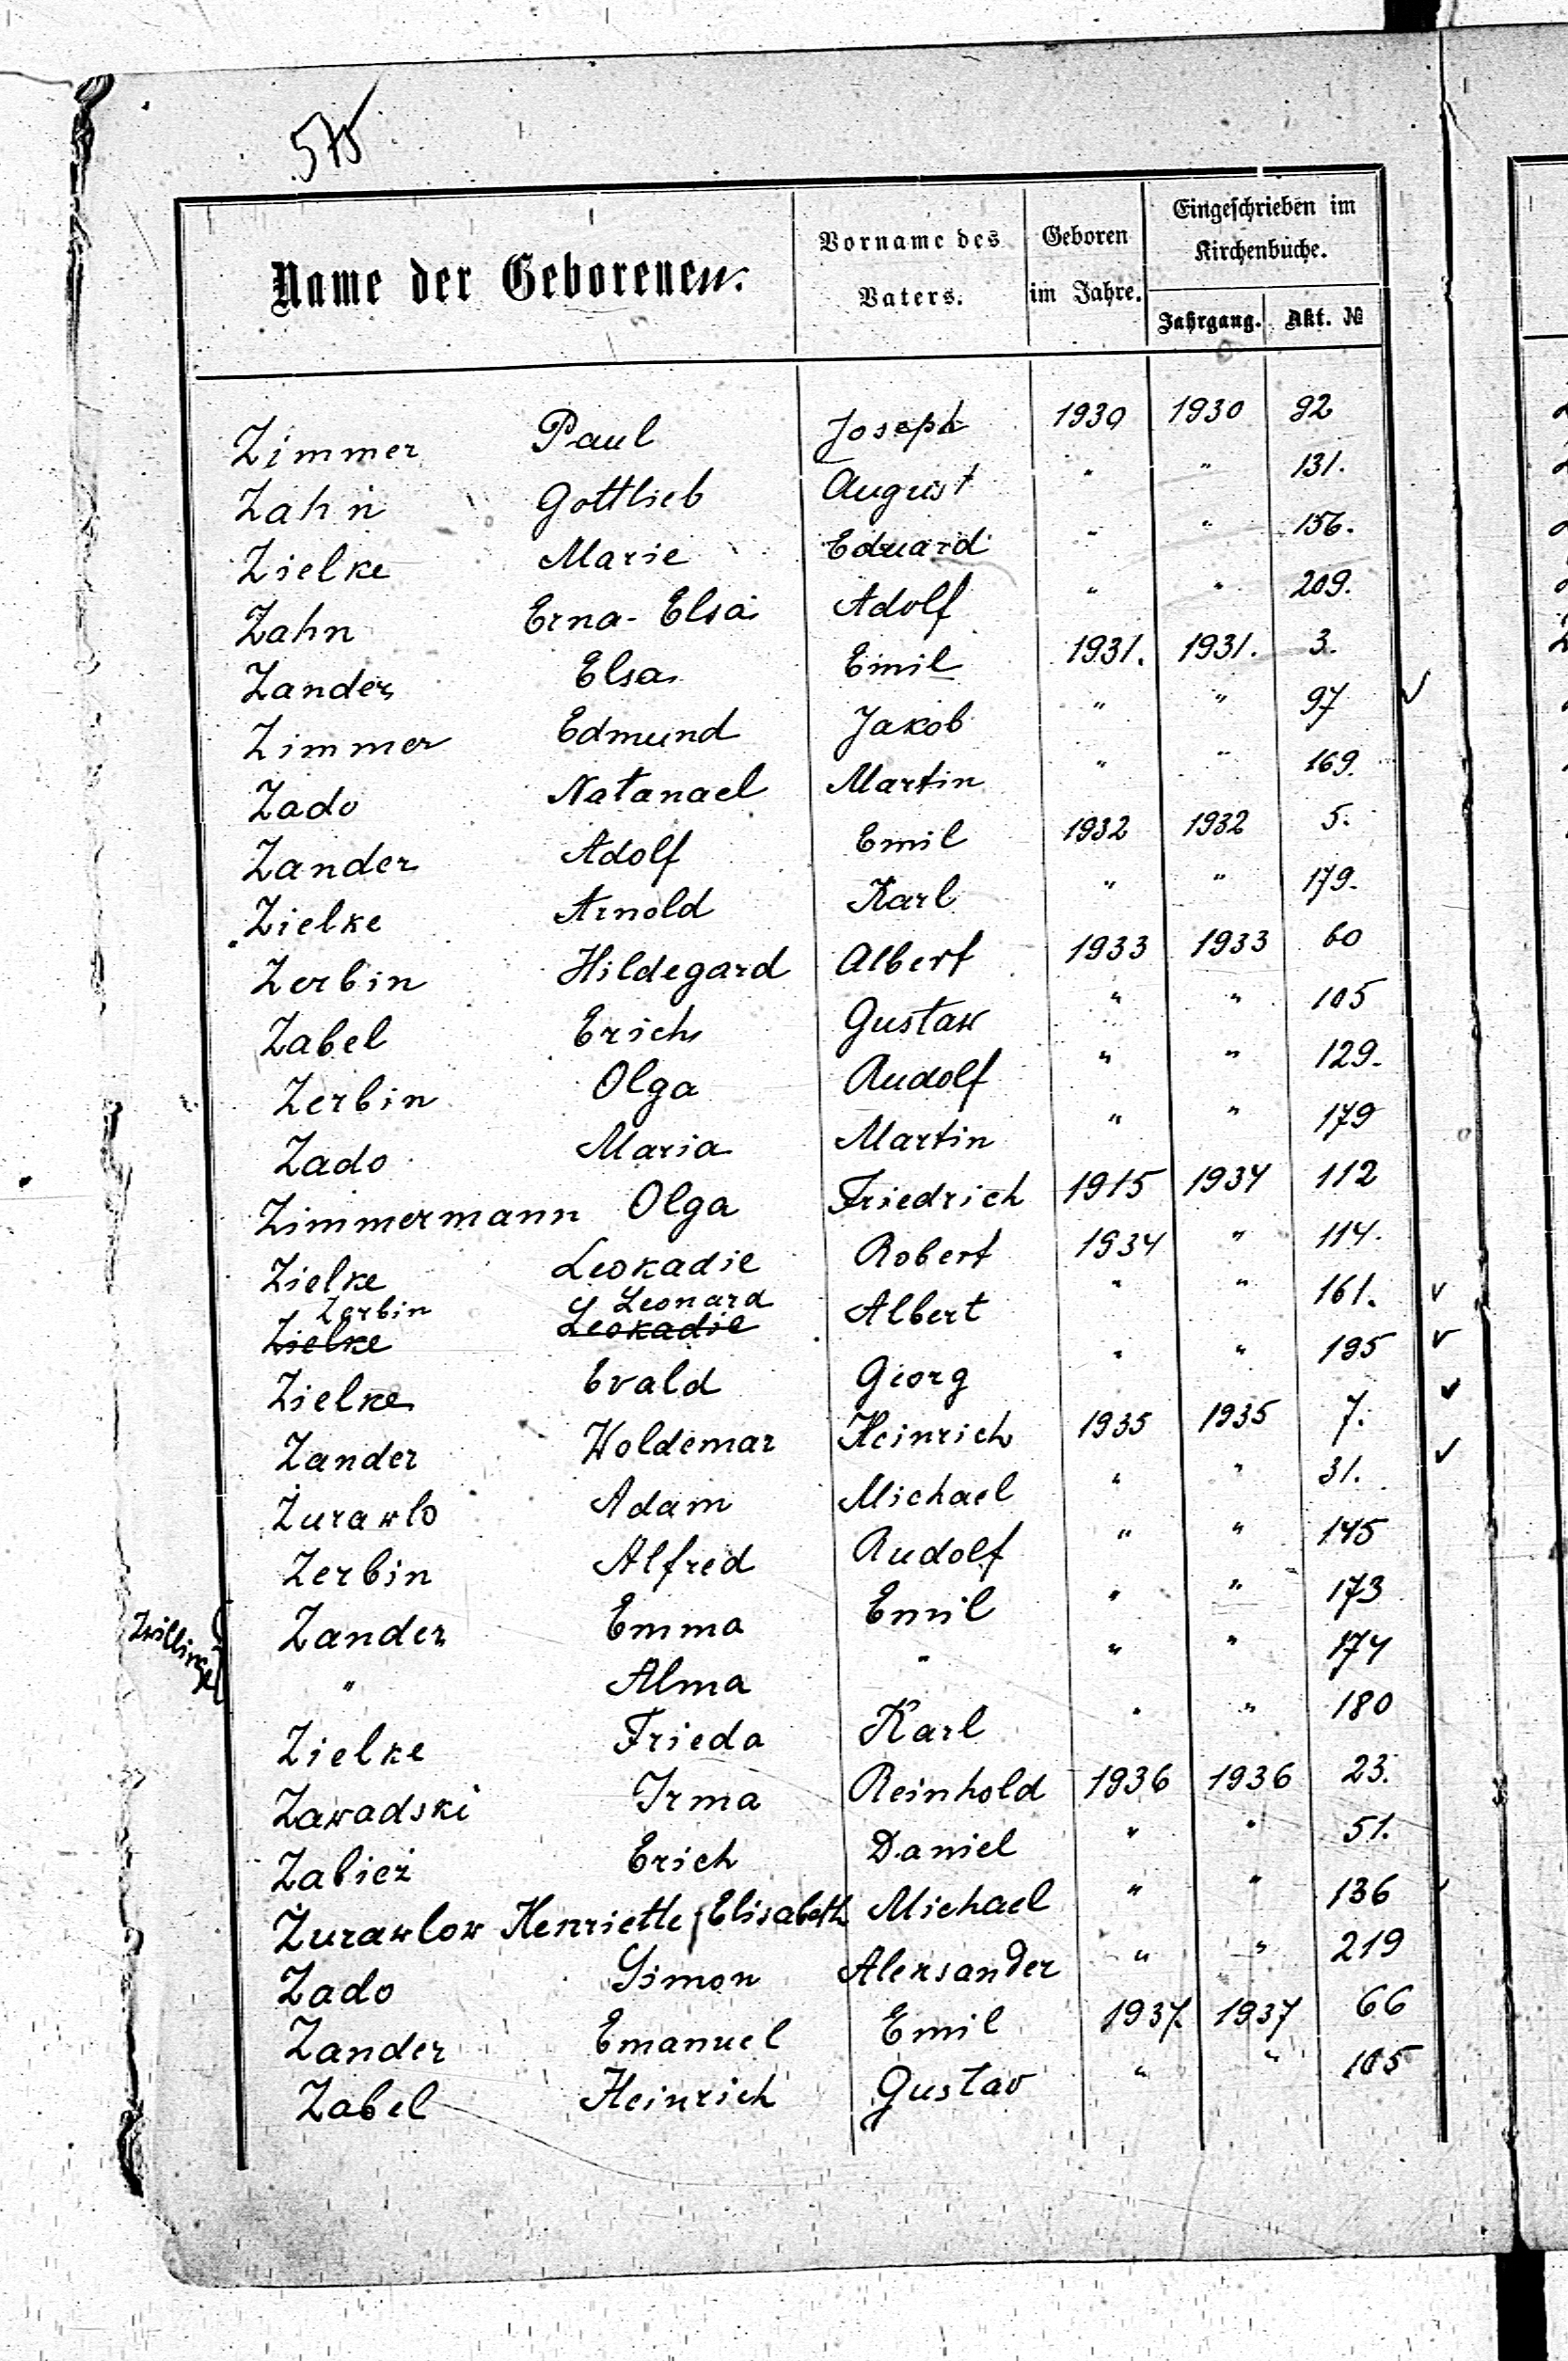 575
Name der Geborenen. Vorname des Vaters. Geboren im Jahre. Eingeschrieben im Kirchenbuche.
Jahrgang. Akt. №
Zimmer Paul Joseph 1930 1930 92
Zahn Gottlieb August " " 131.
Zielke Marie Eduard " " 156.
Zahn Erna-Elsa Adolf " " 209.
Zander Elsa Emil 1931. 1931. 3.
Zimmer Edmund Jakob " " 97 ✓
Zado Natanael Martin " " 169.
Zander Adolf Emil 1932 1932 5.
Zielke Arnold Karl " " 179.
Zerbin Hildegard Albert 1933 1933 60
Zabel Erich Gustaw " " 105
Zerbin Olga Rudolf " " 129.
Zado Maria Martin " " 179
Zimmermann Olga Friedrich 1915 1934 112
Zielke Leokadie Robert 1934 " 114.
Zerbin Leonard
Zielke Leokadie Albert " " 161. ✓
Zielke Evald Georg " " 195 ✓
Zander Woldemar Heinrich 1935 1935 7. ✓
Żurawlo Adam Michael " " 31. ✓
Zerbin Alfred Rudolf " " 145
Zwillinge
Zander Emma Emil " " 173
" Alma " " " 174
Zielke Frieda Karl " " 180
Zawadski Irma Reinhold 1936 1936 23.
Zabież Erich Daniel " " 51.
Żurawlow Henriette Elisabeth Michael " " 136
Zado Simon Aleksander " " 219
Zander Emanuel Emil 1937. 1937 66
Zabel Heinrich Gustav " " 105